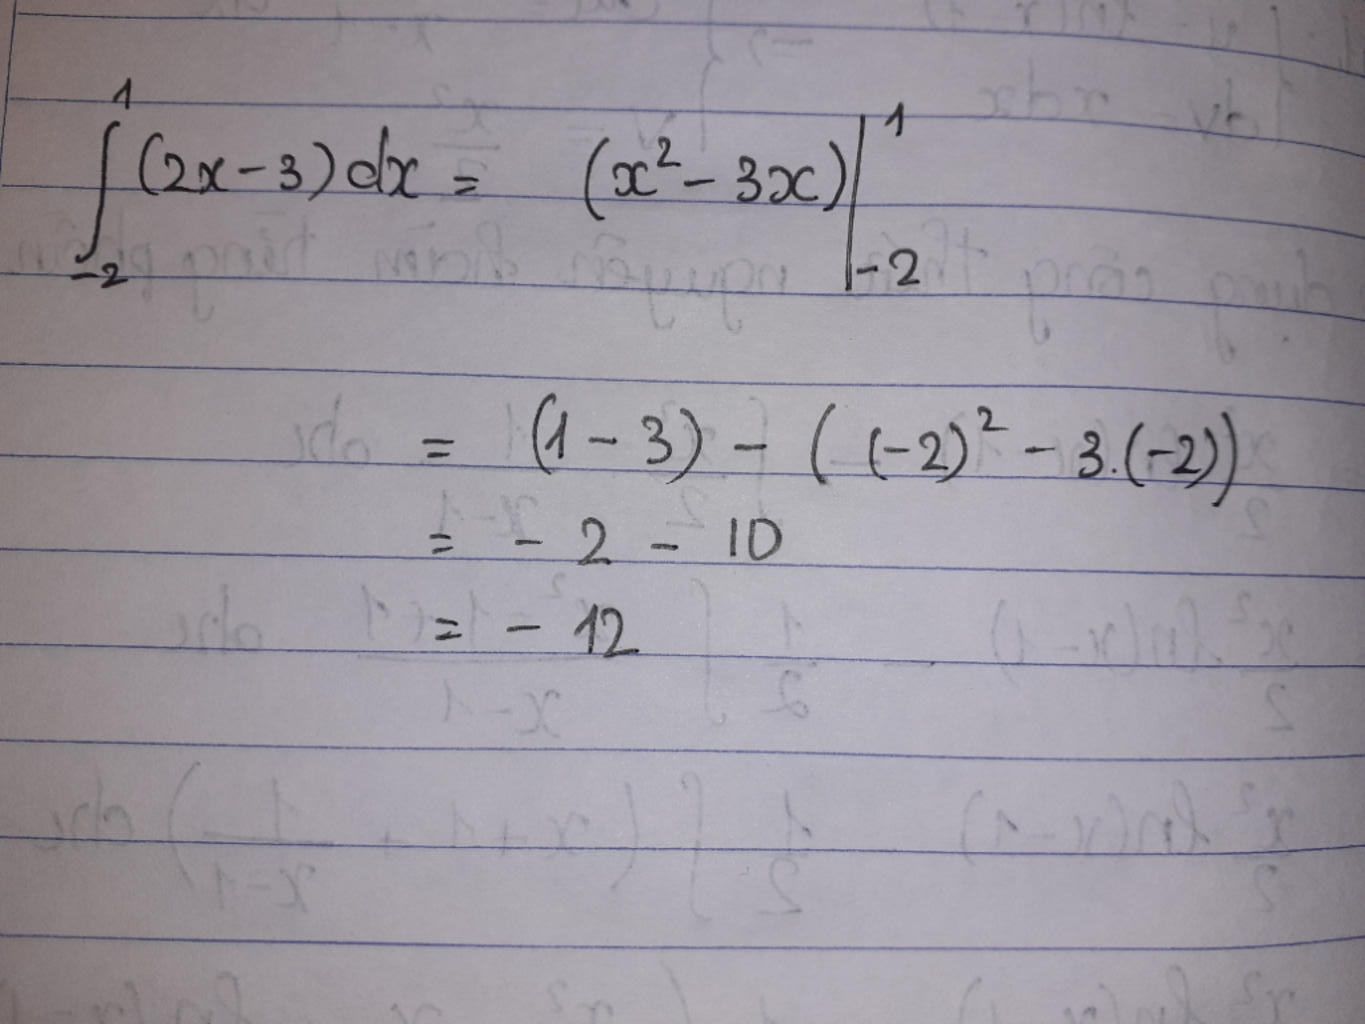 ∫₋₂¹ (2x-3)dx = (x²-3x)|₋₂¹
= (1-3) - ((-2)² - 3.(-2))
= -2 - 10
= -12